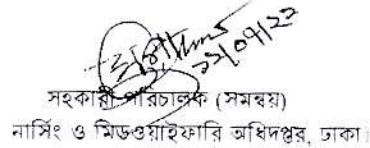 ২২/০৭/২২
সহকারী পরিচালক (সমন্বয়)
নার্সিং ও মিডওয়াইফারি অধিদপ্তর, ঢাকা।